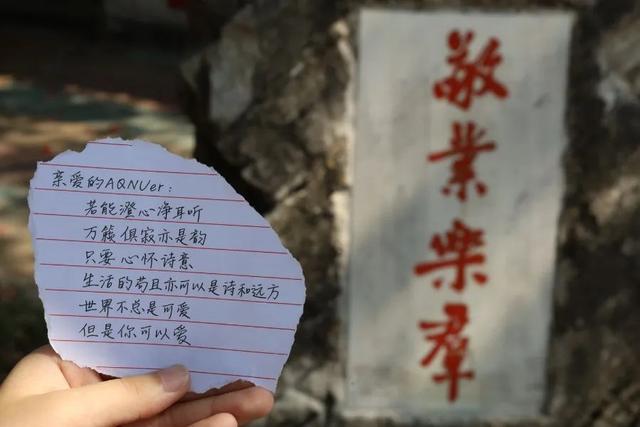 亲爱的AQNUer:
若能澄心净耳听
万籁俱寂亦是韵
只要心怀诗意
生活的苟且亦可以是诗和远方
世界不总是可爱
但是你可以爱
敬業樂群